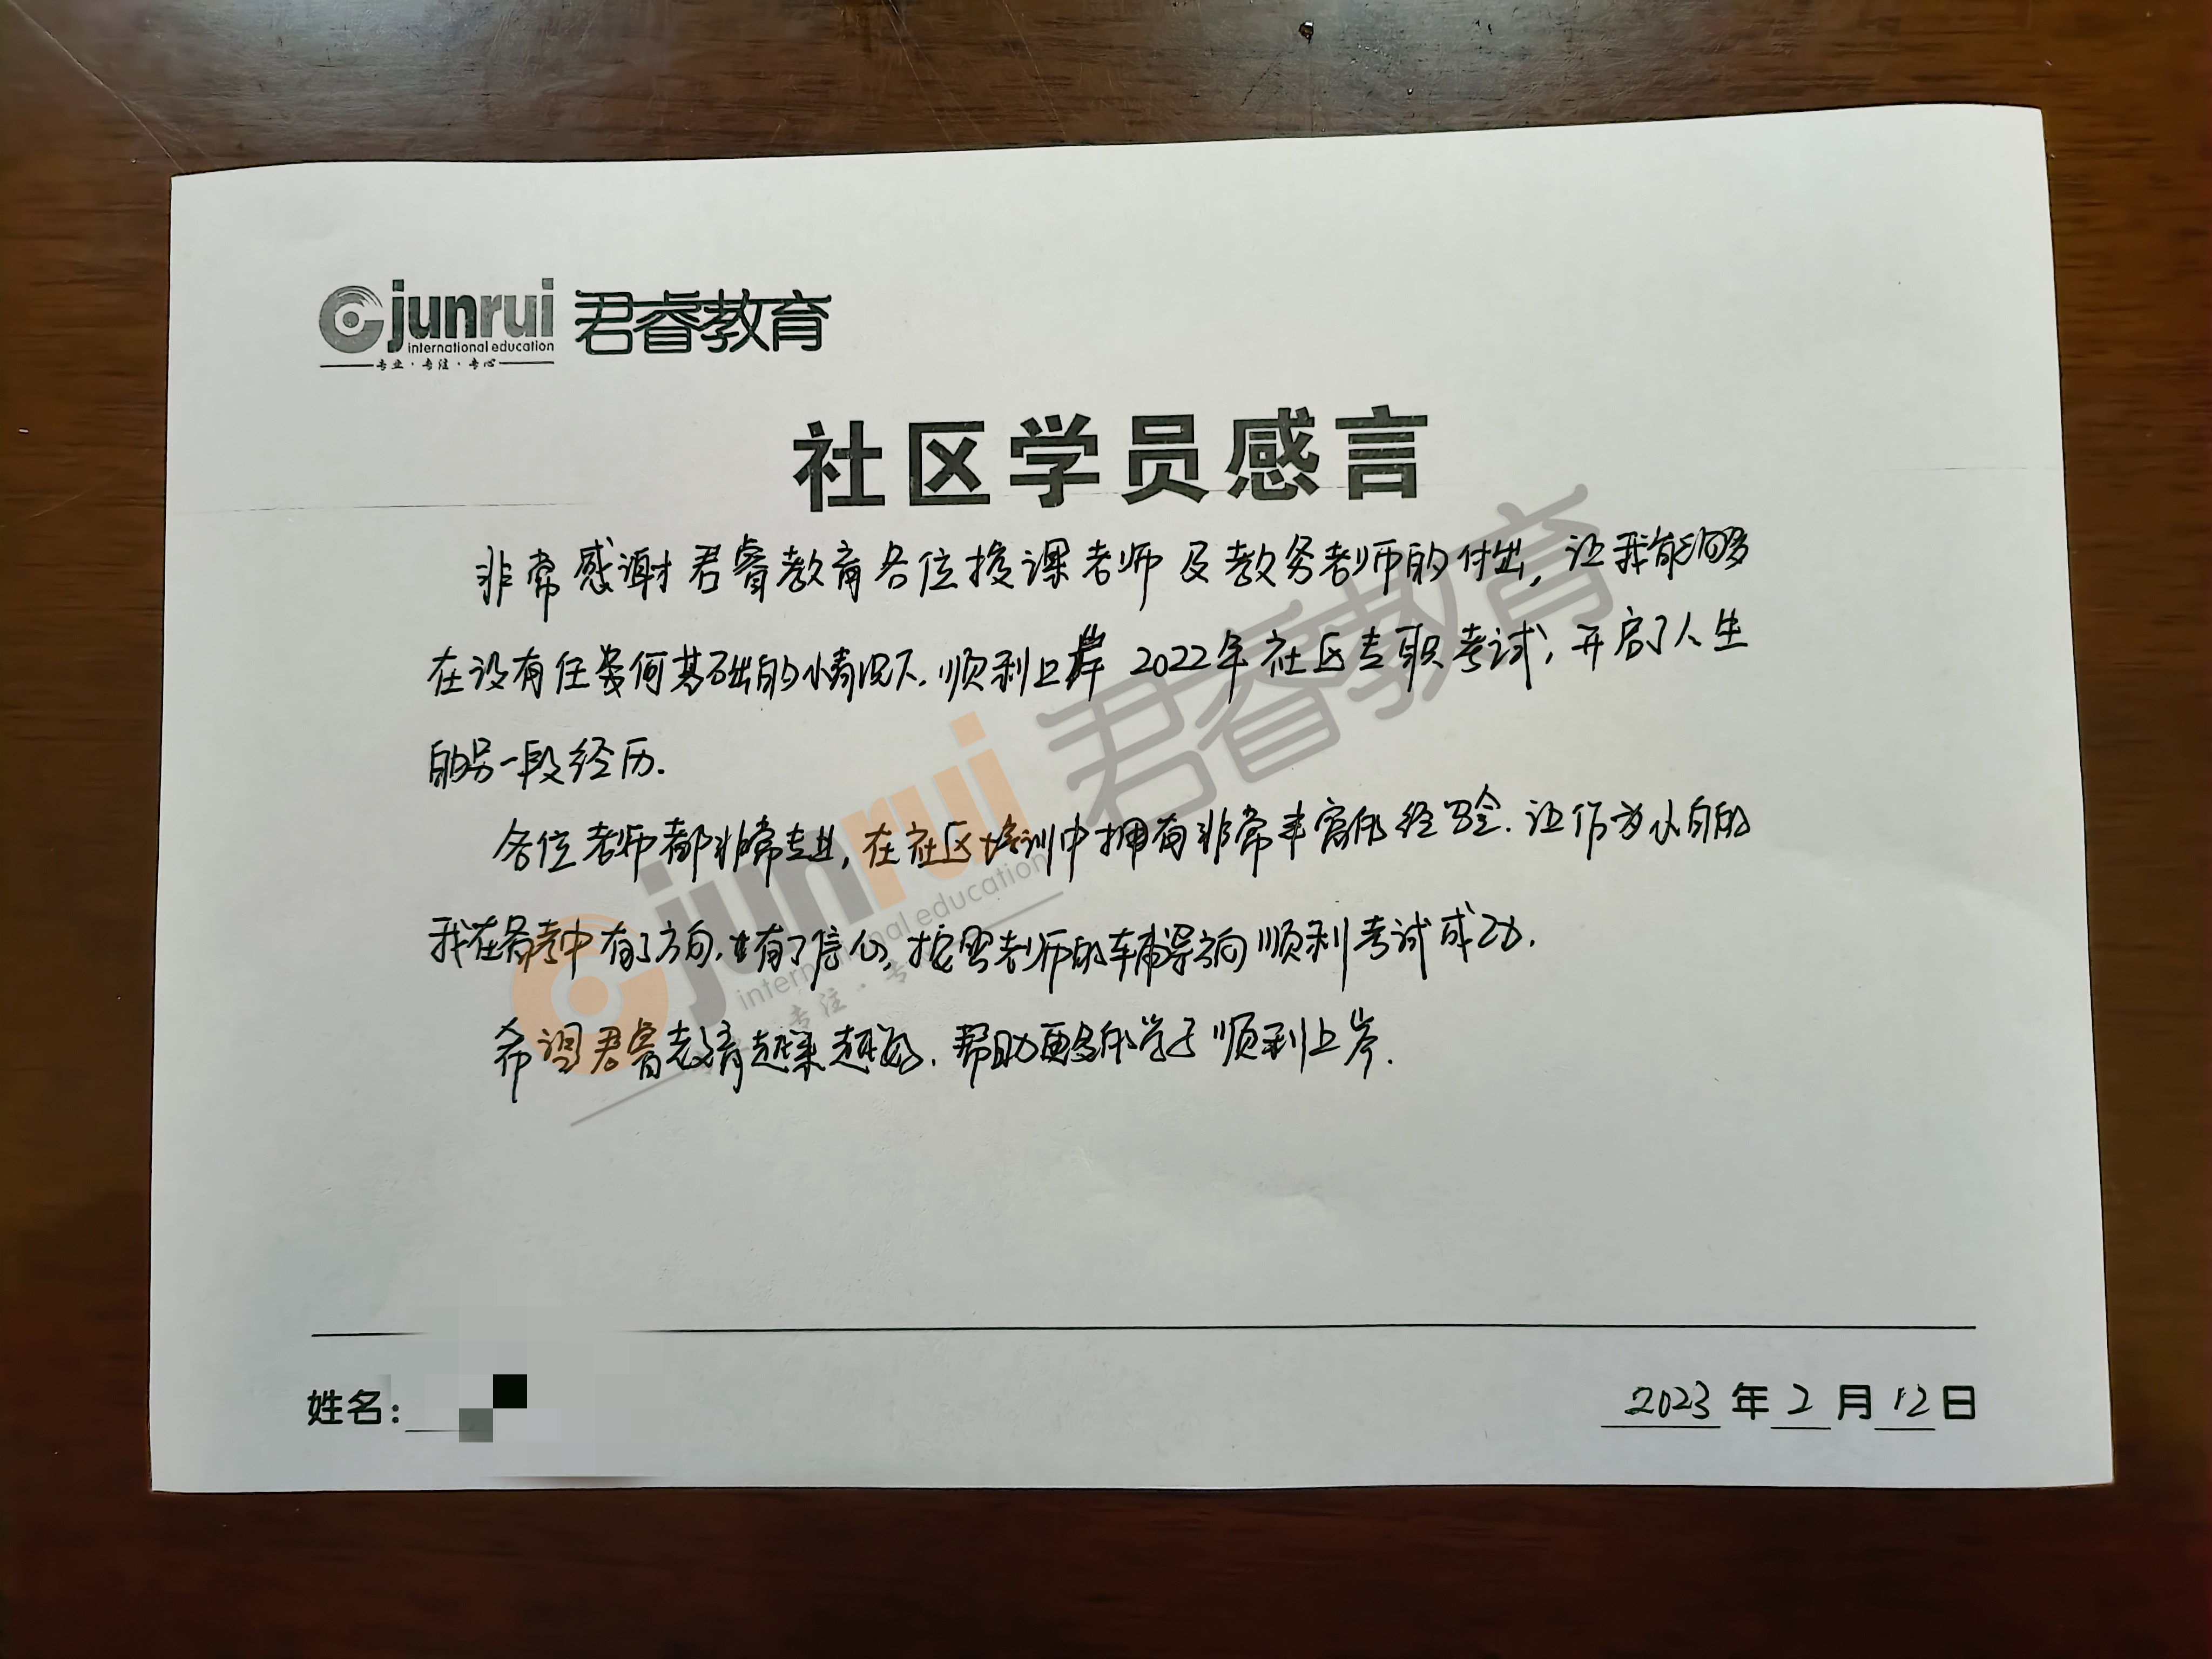 junrui 君睿教育
international education
专业·专注·专心
社区学员感言
非常感谢君睿教育各位授课老师及教务老师的付出，让我能够
在没有任何基础的情况下，顺利上岸2022年社区专职考试，开启了人生
的另一段经历．
各位老师都非常专业，在社区培训中拥有非常丰富的经验．让作为小白的
我在备考中有了方向，也有了信心，按照老师的辅导方向顺利考试成功．
希望君睿教育越来越好．帮助更多的学子顺利上岸．
junrui 君睿教育
international education
专注·专
姓名：
2023年2月12日